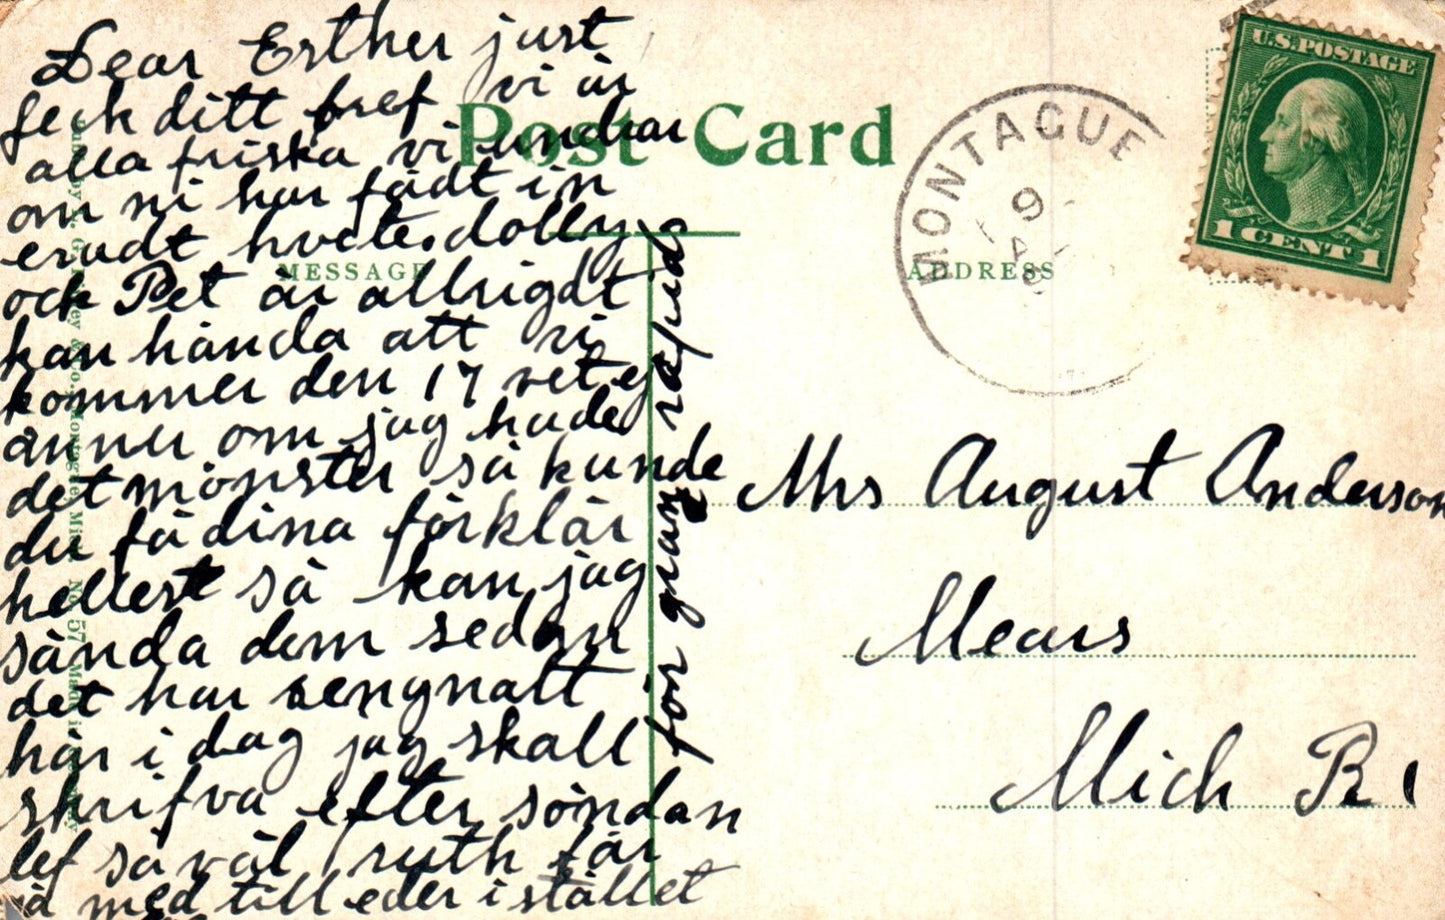 Dear Esther just
feck ditt bref vi är
alla friska vi undrar
om ni har fådt in
eradt hvete. dolly
och Pet är allrigdt
kan hända att vi
kommer den 17 vet ej
änner om jag hade
det mönster så kunde
du få dina förklär
hellest så kan jag
sända dem sedan
det har rengnatt
här i dag jag skall
skrifva efter söndan
lef så väl ruth får
med till eder i stället
for
Post Card
MESSAGE
ADDRESS
MONTAGUE
9
U.S. POSTAGE
1 CENT 1
Mrs August Anderson
Mears
Mich R 1